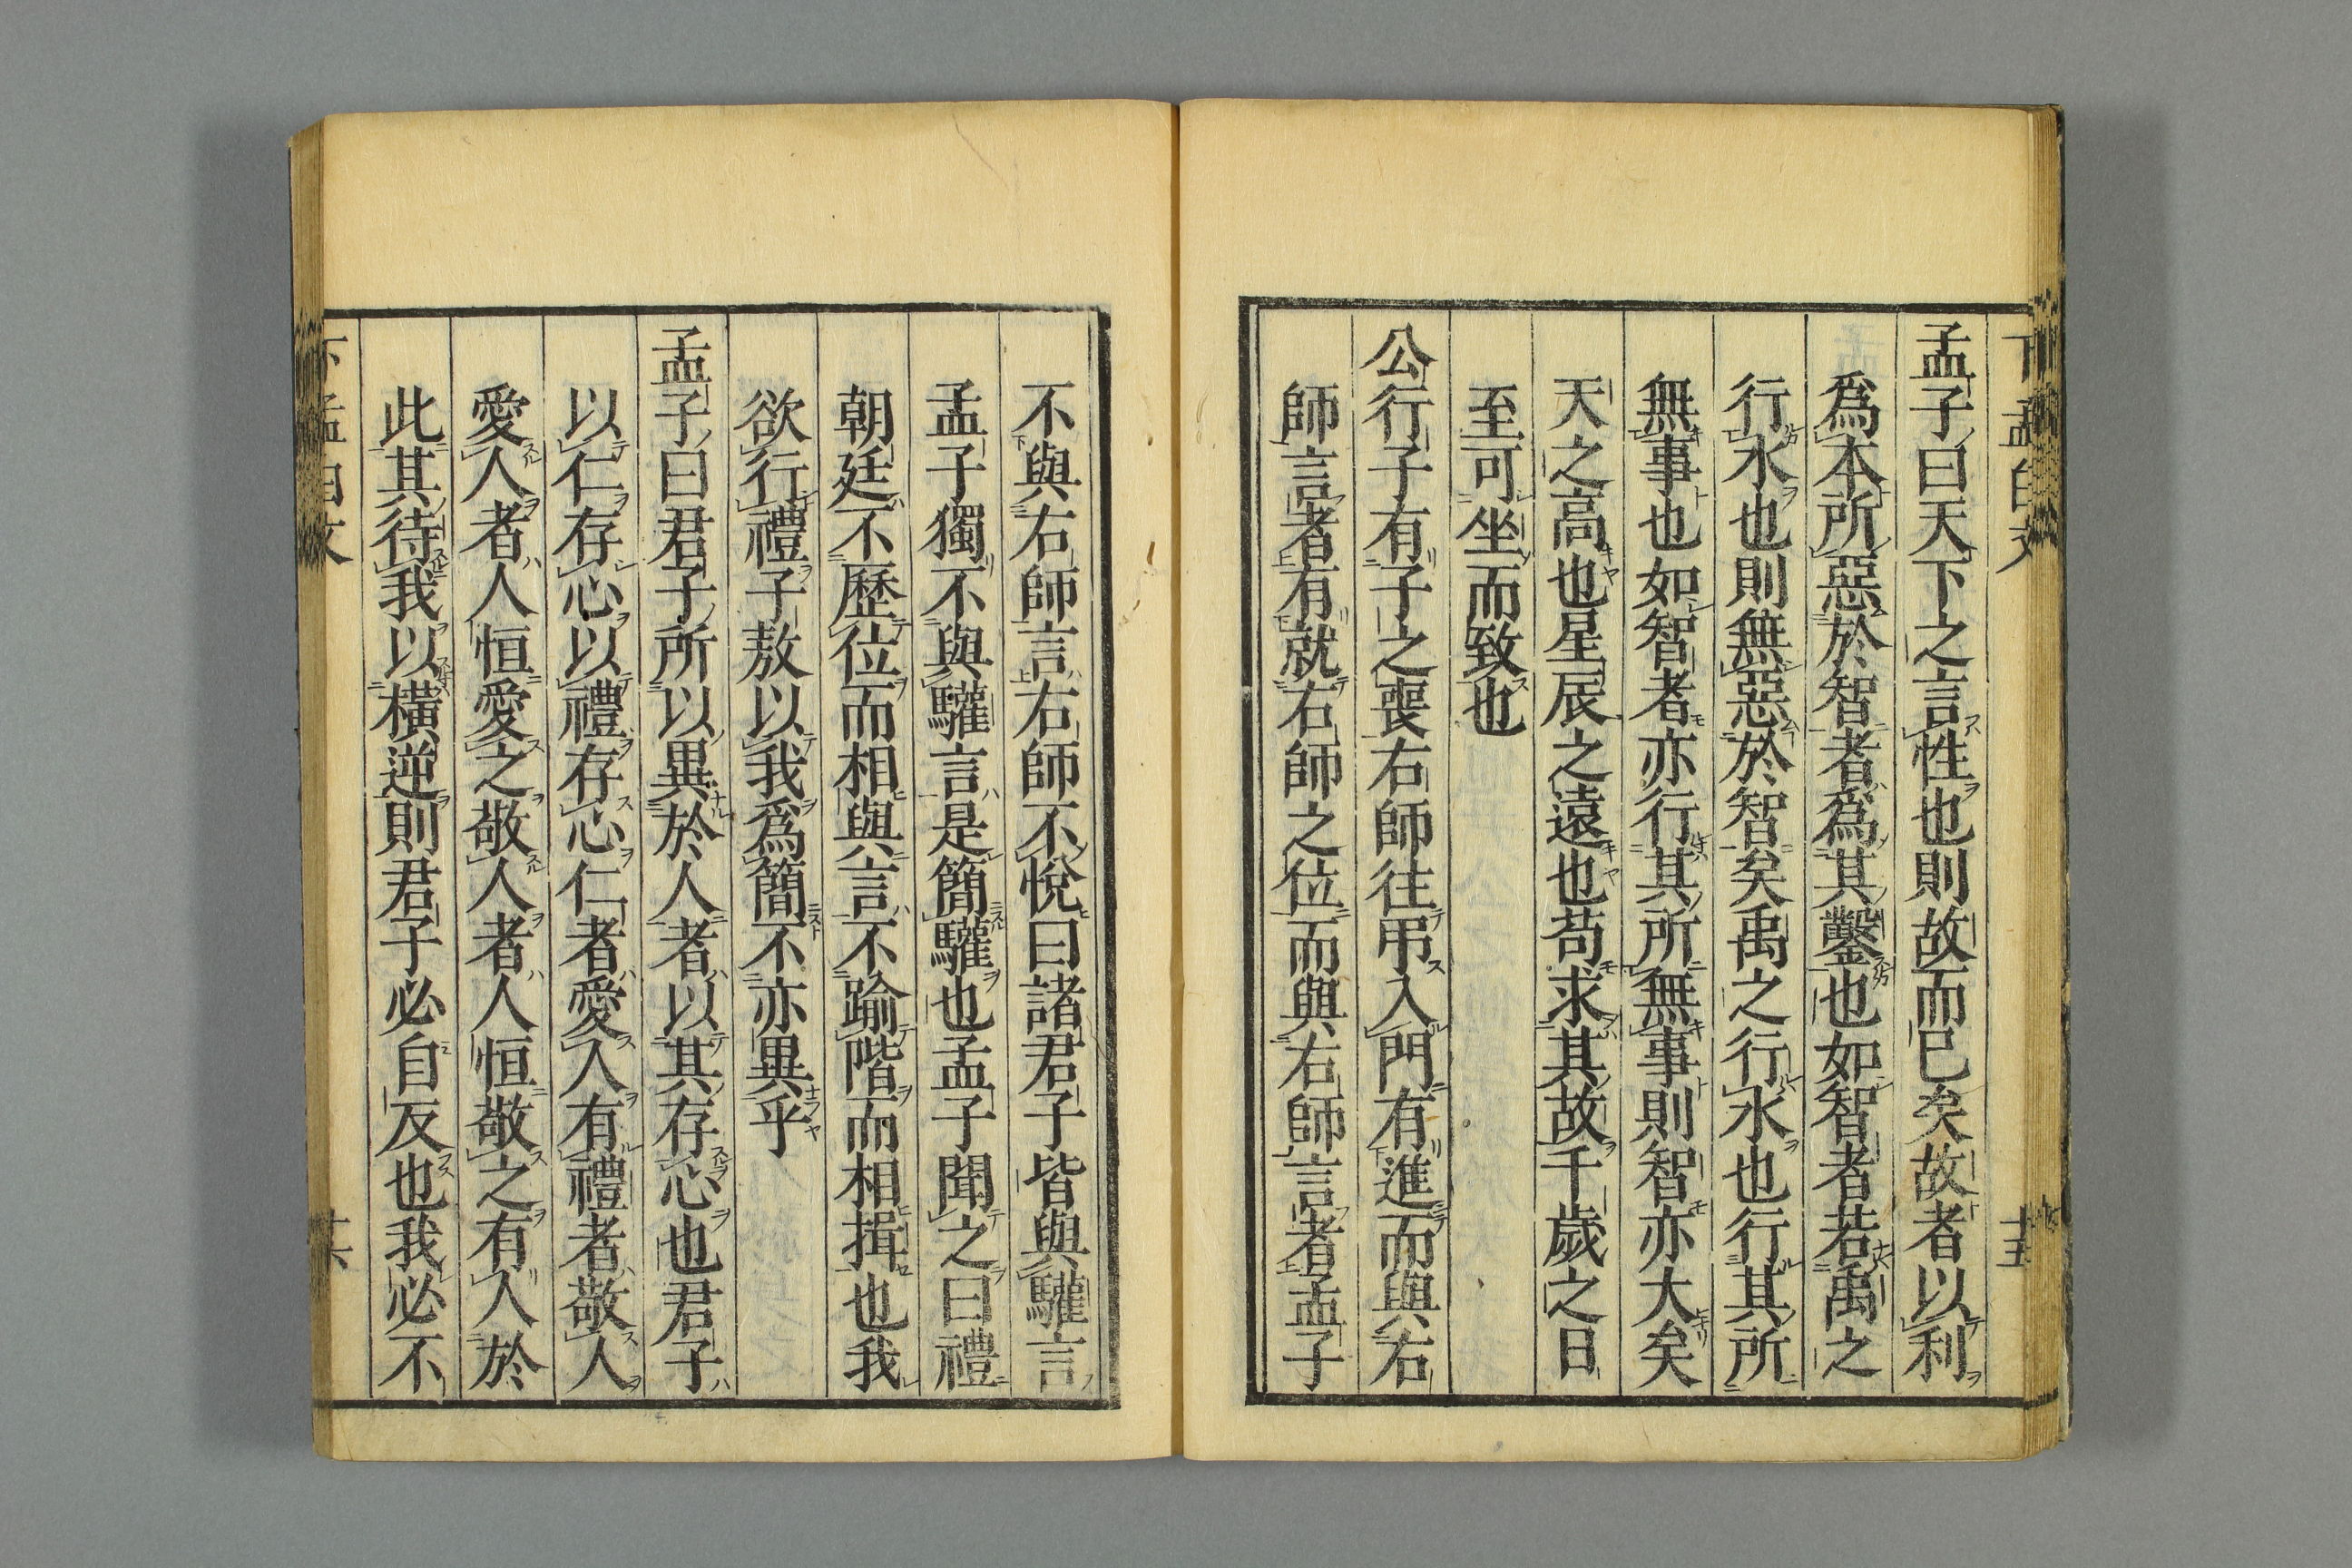 孟子曰天下之言性也則故而已矣故者以利
爲本所惡於智者爲其鑿也如智者若禹之
行水也則無惡於智矣禹之行水也行其所
無事也如智者亦行其所無事則智亦大矣
天之高也星辰之遠也苟求其故千歲之日
至可坐而致也
公行子有子之喪右師往弔入門有進而與右
師言者有就右師之位而與右師言者孟子
不與右師言右師不悅曰諸君子皆與驩言
孟子獨不與驩言是簡驩也孟子聞之曰禮
朝廷不歷位而相與言不踰階而相揖也我
欲行禮子敖以我爲簡不亦異乎
孟子曰君子所以異於人者以其存心也君子
以仁存心以禮存心仁者愛人有禮者敬人
愛人者人恒愛之敬人者人恒敬之有人於
此其待我以橫逆則君子必自反也我必不